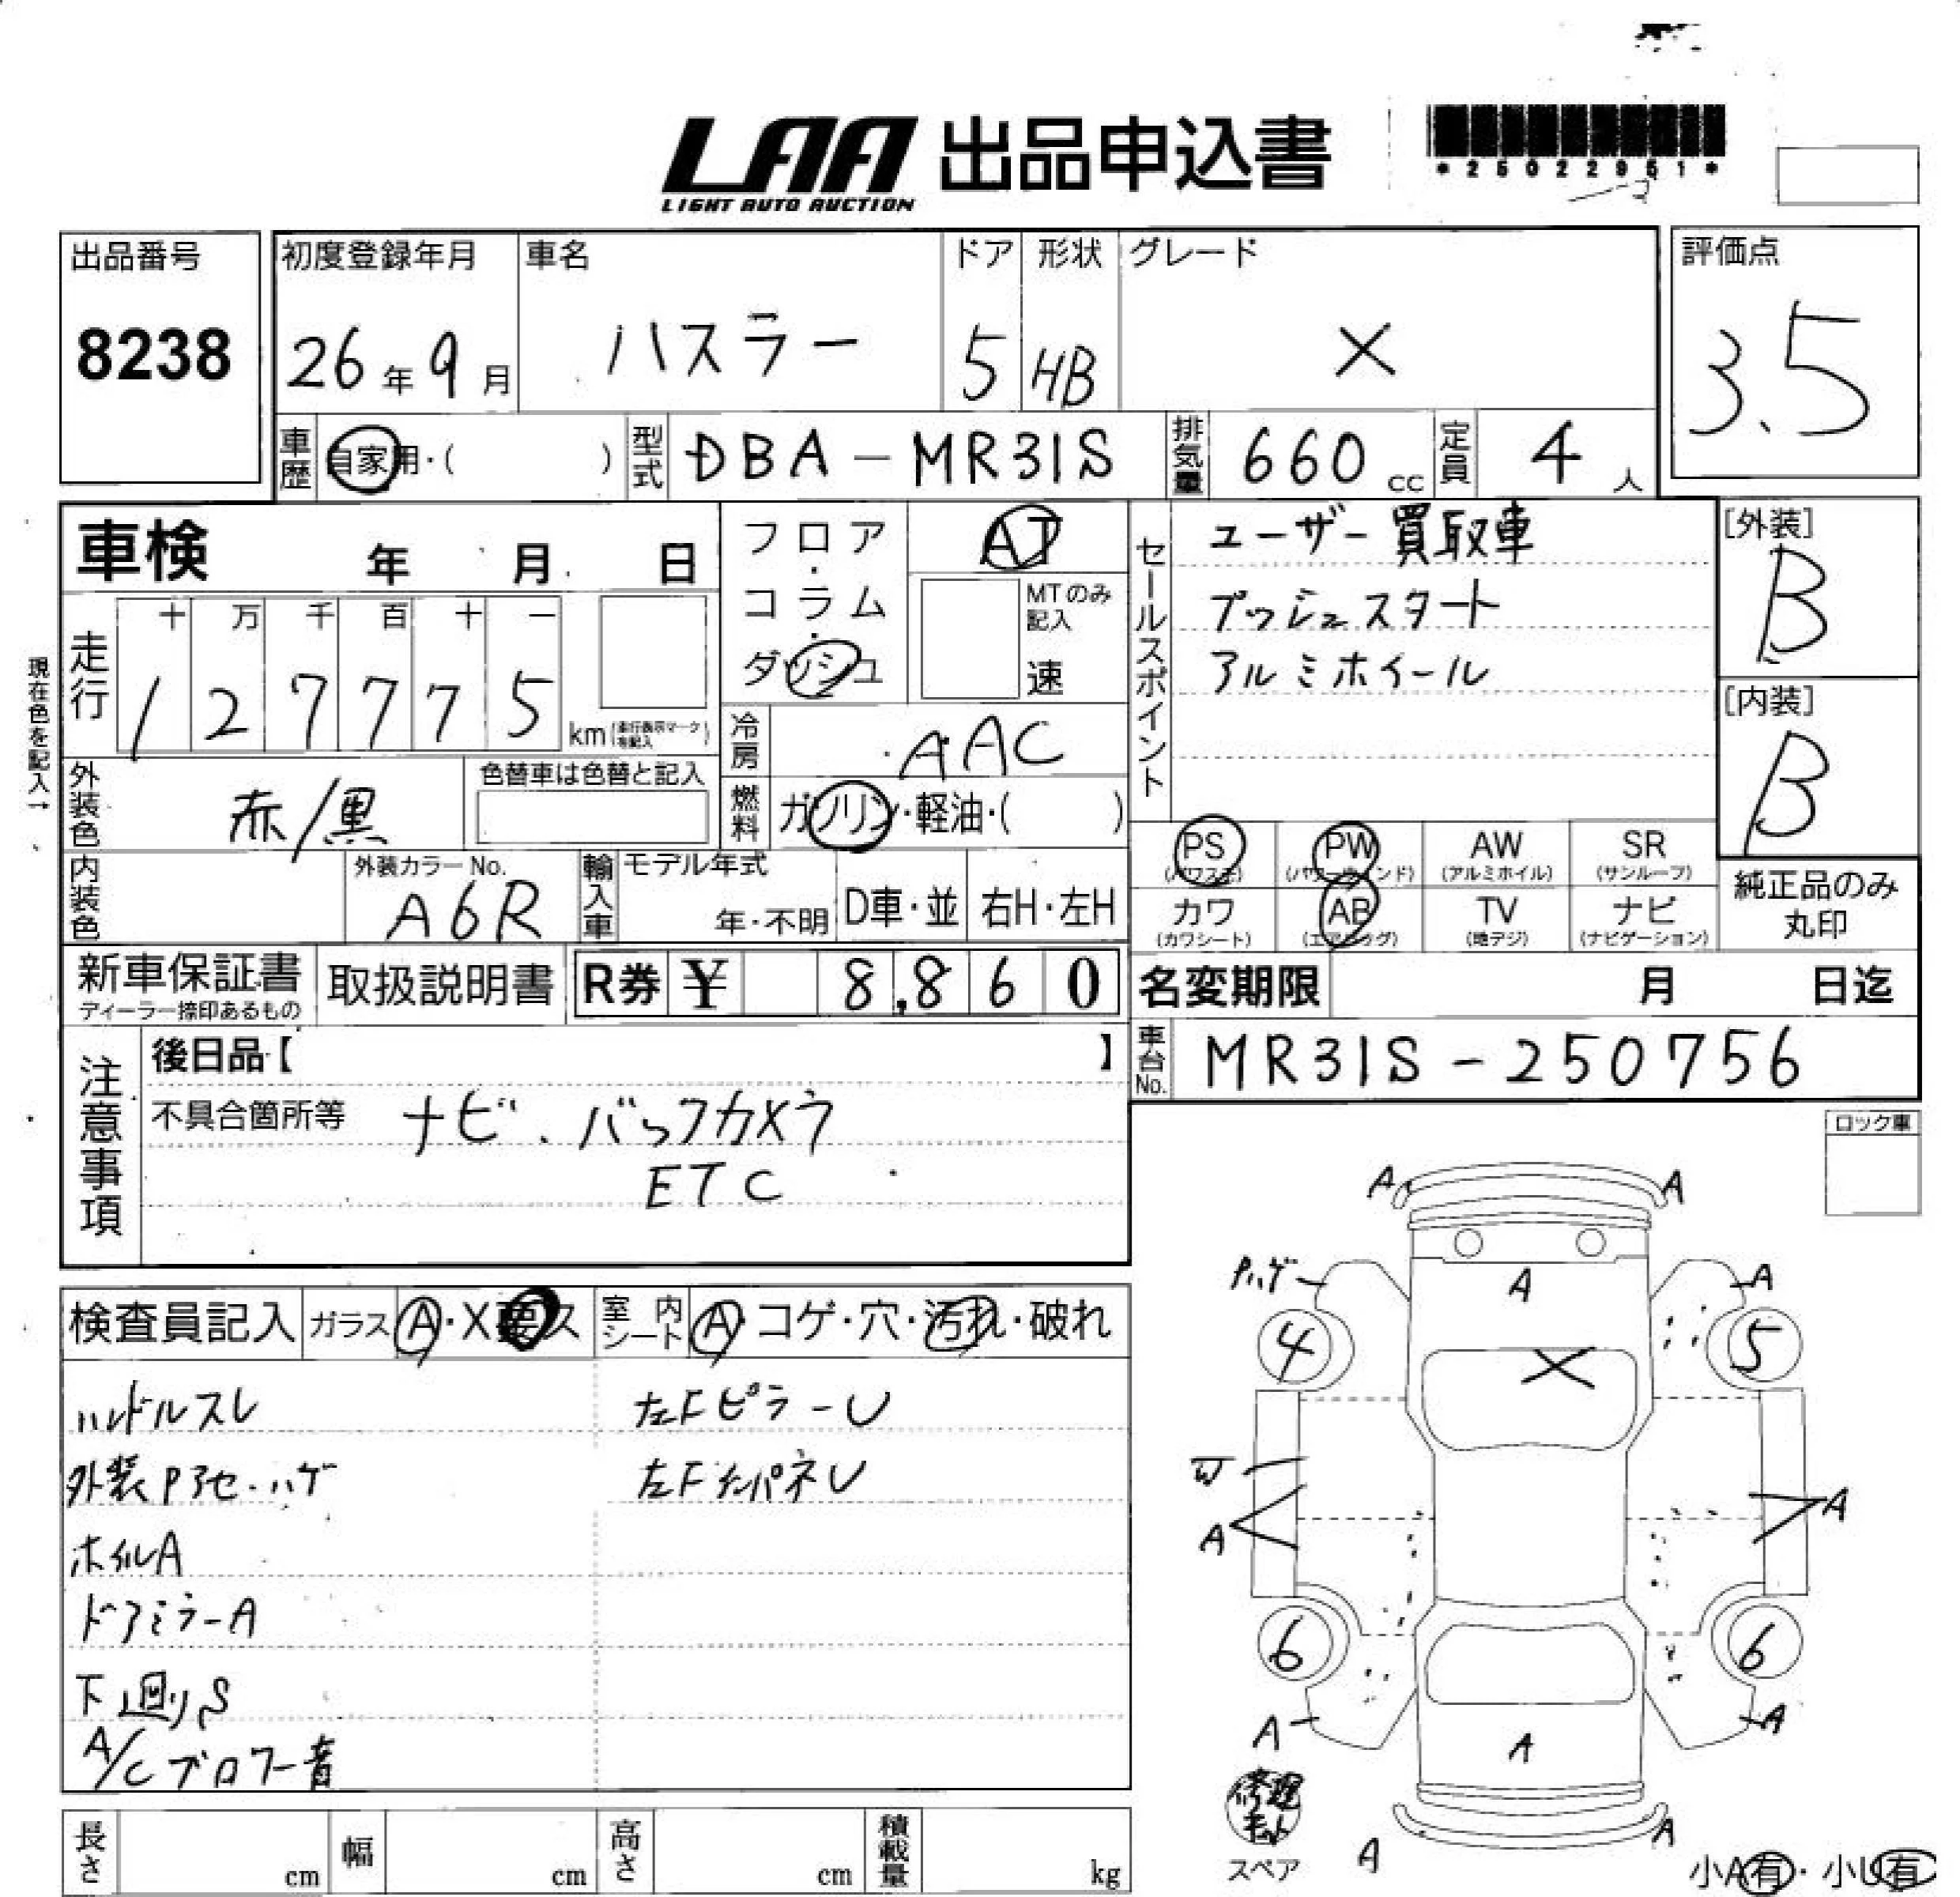 LAA 出品申込書
LIGHT AUTO AUCTION
*25022951*
出品番号
8238
初度登録年月
26年9月
車名
ハスラー
ドア
5
形状
HB
グレード
X
評価点
3.5
車歴 自家用・( )
型式 DBA-MR31S
排気量 660 cc
定員 4人
車検 年 月 日
フロア・コラム・ダッシュ
AT
MTのみ記入
速
走行
十 万 千 百 十 一
1 2 7 7 7 5
km(走行表示マークを記入)
現在色を記入→
冷房 AAC
燃料 ガソリン・軽油・( )
外装色 赤/黒
色替車は色替と記入
内装色
外装カラーNo.
A6R
輸入車
モデル年式
年・不明
D車・並
右H・左H
セールスポイント
ユーザー買取車
プッシュスタート
アルミホイール
[外装]
B
[内装]
B
PS (パワステ)
PW (パワーウインド)
AW (アルミホイル)
SR (サンルーフ)
カワ (カワシート)
AB (エアバッグ)
TV (地デジ)
ナビ (ナビゲーション)
純正品のみ丸印
新車保証書
ディーラー捺印あるもの
取扱説明書
R券 ¥ 8,860
名変期限 月 日迄
車台No. MR31S-250756
注意事項
後日品【 】
不具合箇所等 ナビ、バックカメラ
ETC
ロック車
検査員記入
ガラス A・X要ス
室内シート A・コゲ・穴・汚れ・破れ
ハンドルスレ
左FピラーU
外装Pアセ・ハゲ
ホイルA
ドアミラーA
下廻りS
A/Cブロワー音
A
A
ハゲ
A
A
4
5
X
A
A
6
6
A
A
A
修理キット
スペア
A
A
小A有・小U有
長さ cm
幅 cm
高さ cm
積載量 kg